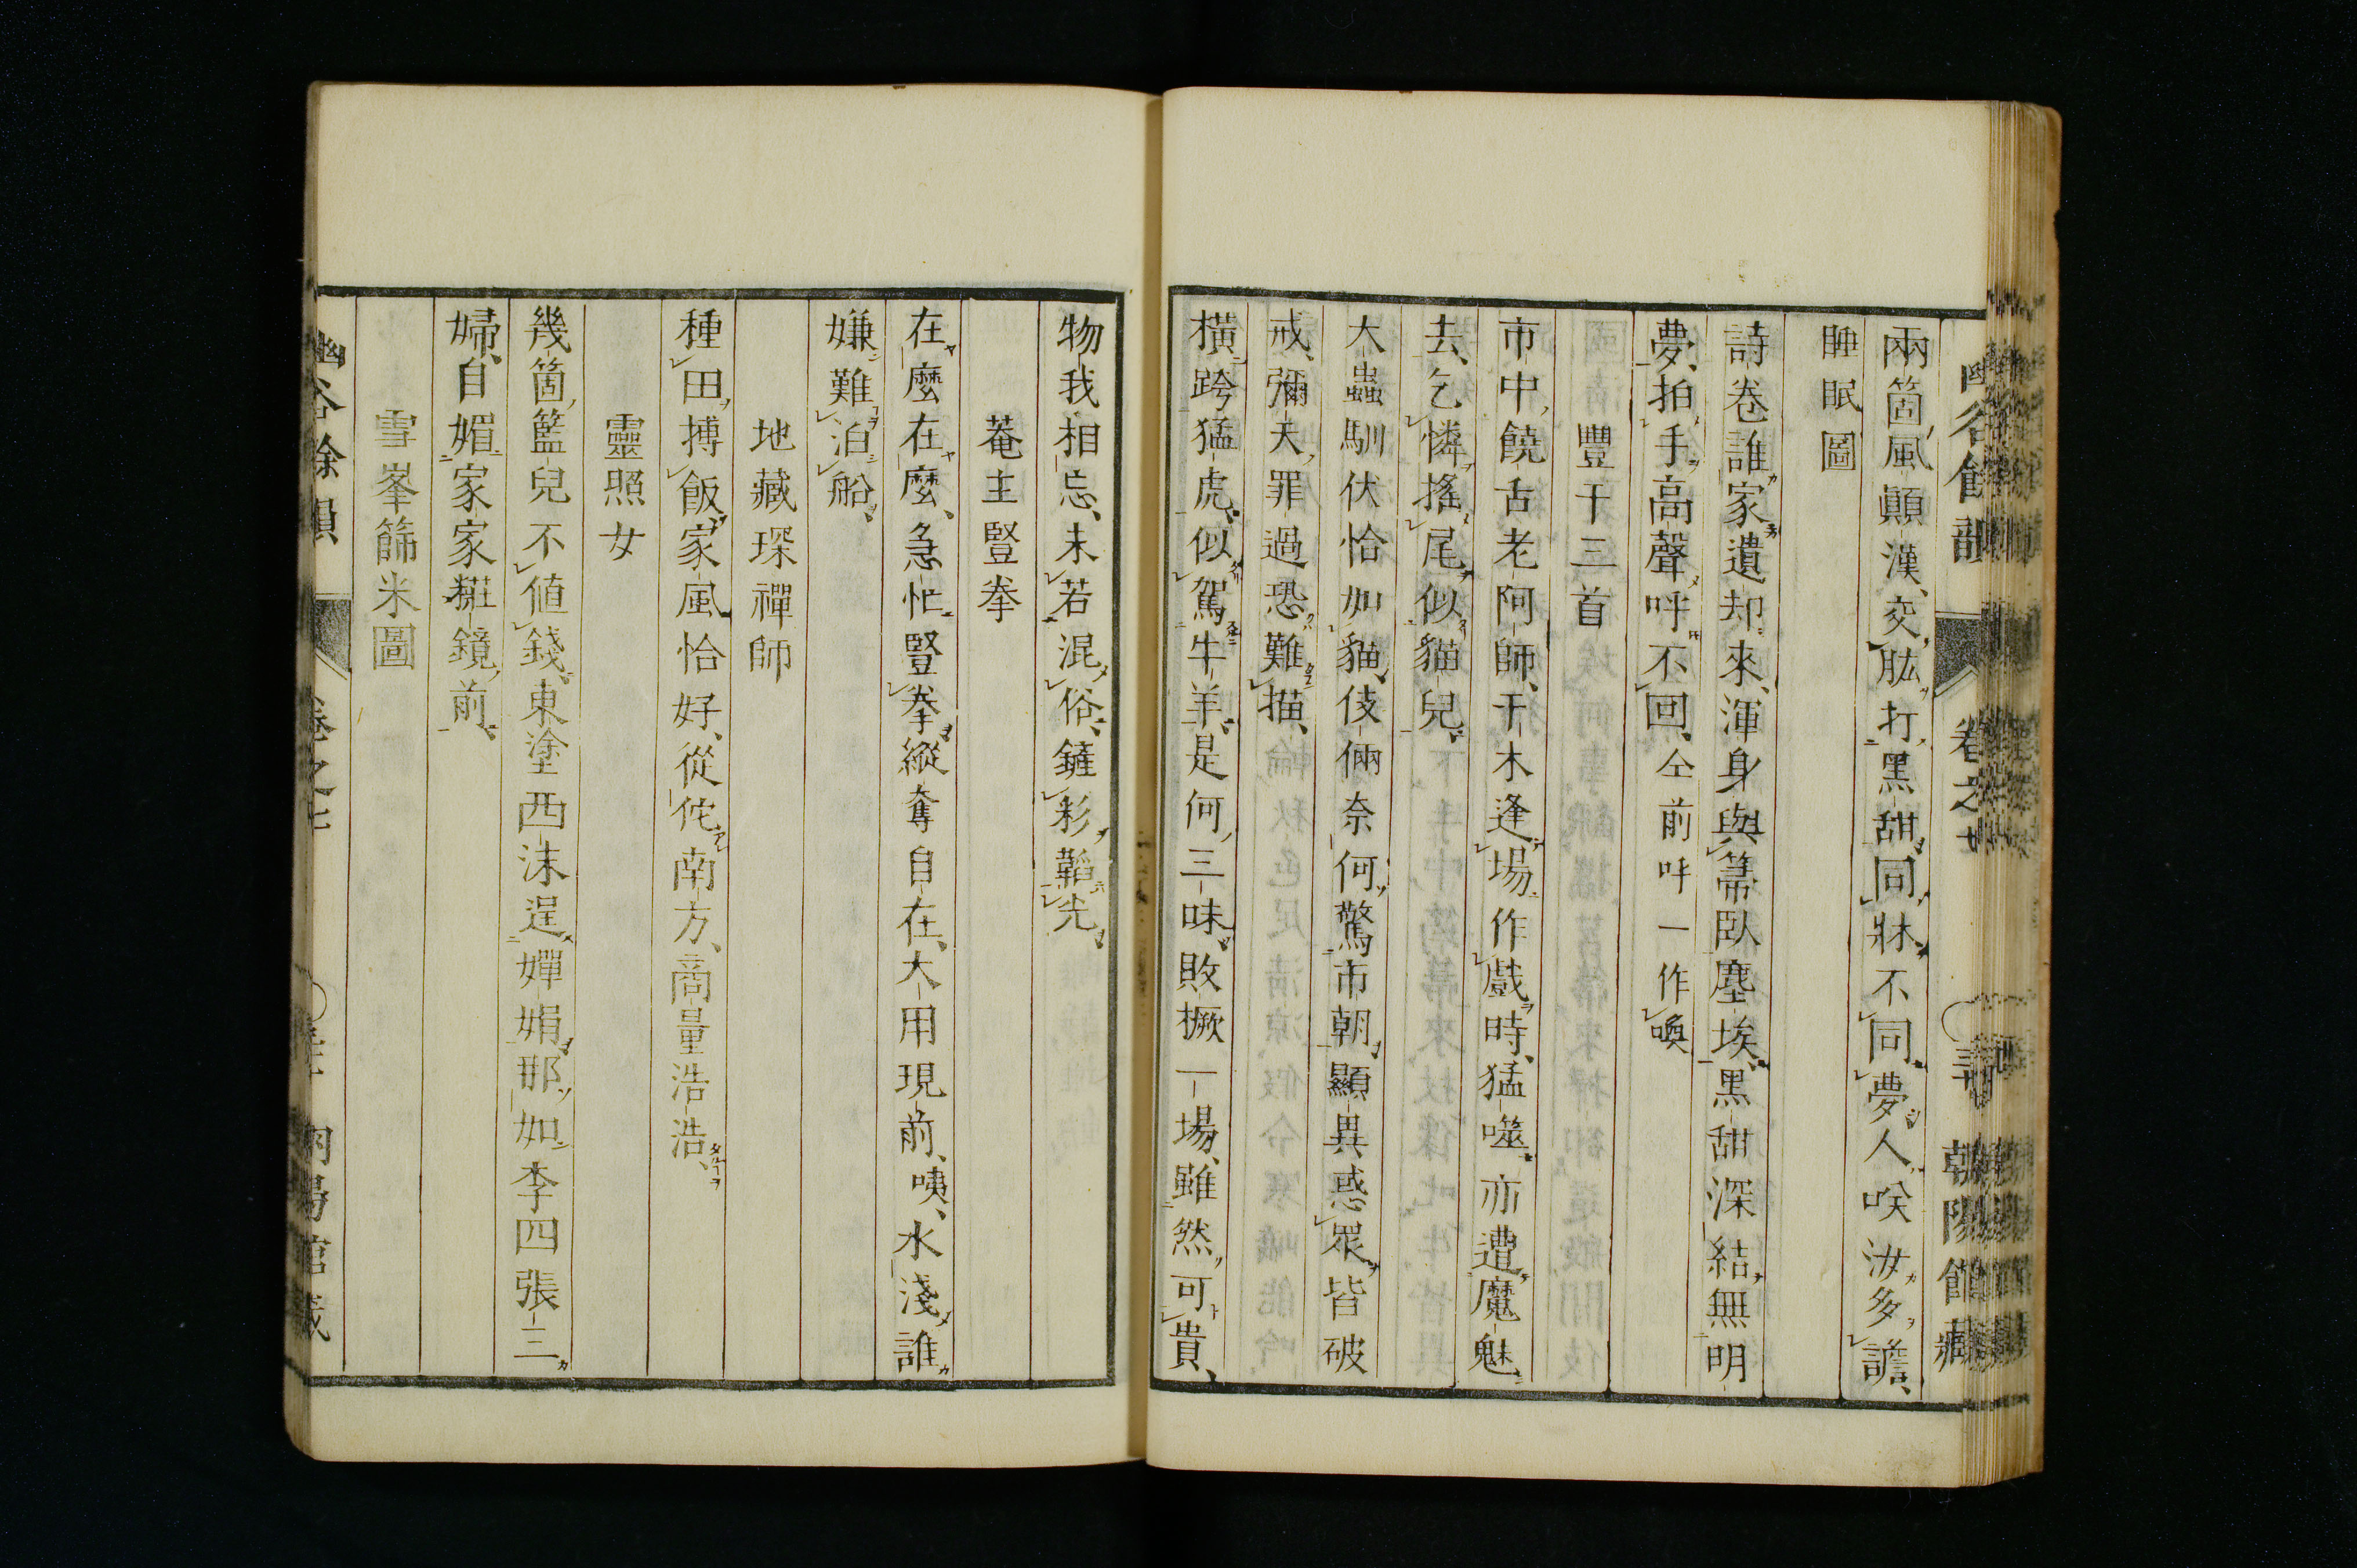 幽谷餘韻 卷之七 朝陽館藏
兩箇風顛漢、交肱打黑甜、同牀不同夢、人喚汝多譫、
睡眠圖
詩卷誰家遺却來、渾身與箒臥塵埃、黑甜深結無明
夢、拍手高聲呼不回、仝前呼一作喚
豐干三首
市中饒舌老阿師、干木逢場作戲時、猛噬亦遭魔魅
去、乞憐搖尾似貓兒、
大蟲馴伏恰如貓、伎倆奈何驚市朝、顯異惑眾皆破
戒、彌天罪過恐難描、
橫跨猛虎、似駕牛羊、是何三味、敗橛一場、雖然可貴、
物我相忘、未若混俗、鏟彩韜光、
菴主豎拳
在麼在麼、急忙豎拳、縱奪自在、大用現前、咦、水淺誰
嫌難泊船、
地藏琛禪師
種田摶飯家風恰好、從佗南方、商量浩浩、
靈照女
幾箇籃兒不値錢、東塗西沫逞嬋娟、那如李四張三
婦、自媚家家糚鏡前、
雪峯篩米圖
幽谷餘韻 卷之七